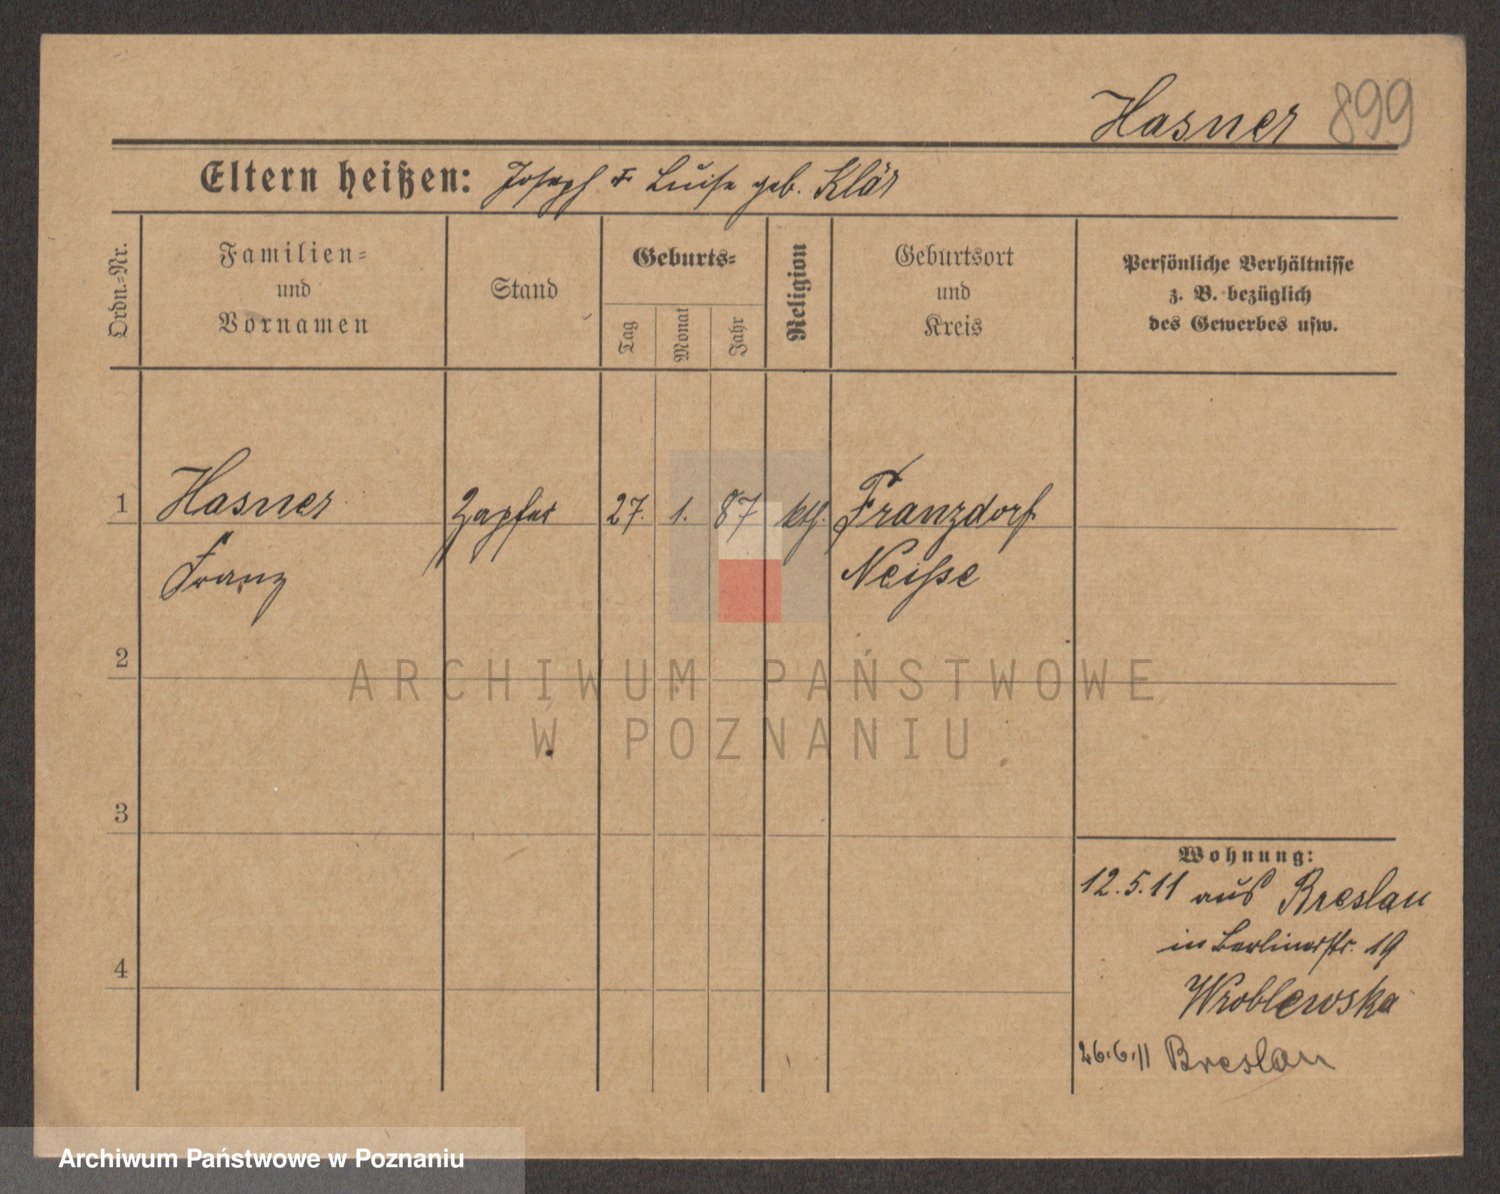 Hasner 899
Eltern heißen: Joseph u Luise geb. Klär
Ordn.=Nr.
Familien=
und
Vornamen
Stand
Geburts=
Tag
Monat
Jahr
Religion
Geburtsort
und
Kreis
Persönliche Verhältnisse
z. B. bezüglich
des Gewerbes usw.
1 Hasner Zapfer 27. 1. 87 kth. Franzdorf
Franz Neisse
2
ARCHIWUM PAŃSTWOWE
W POZNANIU
3
Wohnung:
12.5.11 aus Breslau
in Berlinerstr. 19
4
Wroblewska
26.6.11 Breslau
Archiwum Państwowe w Poznaniu